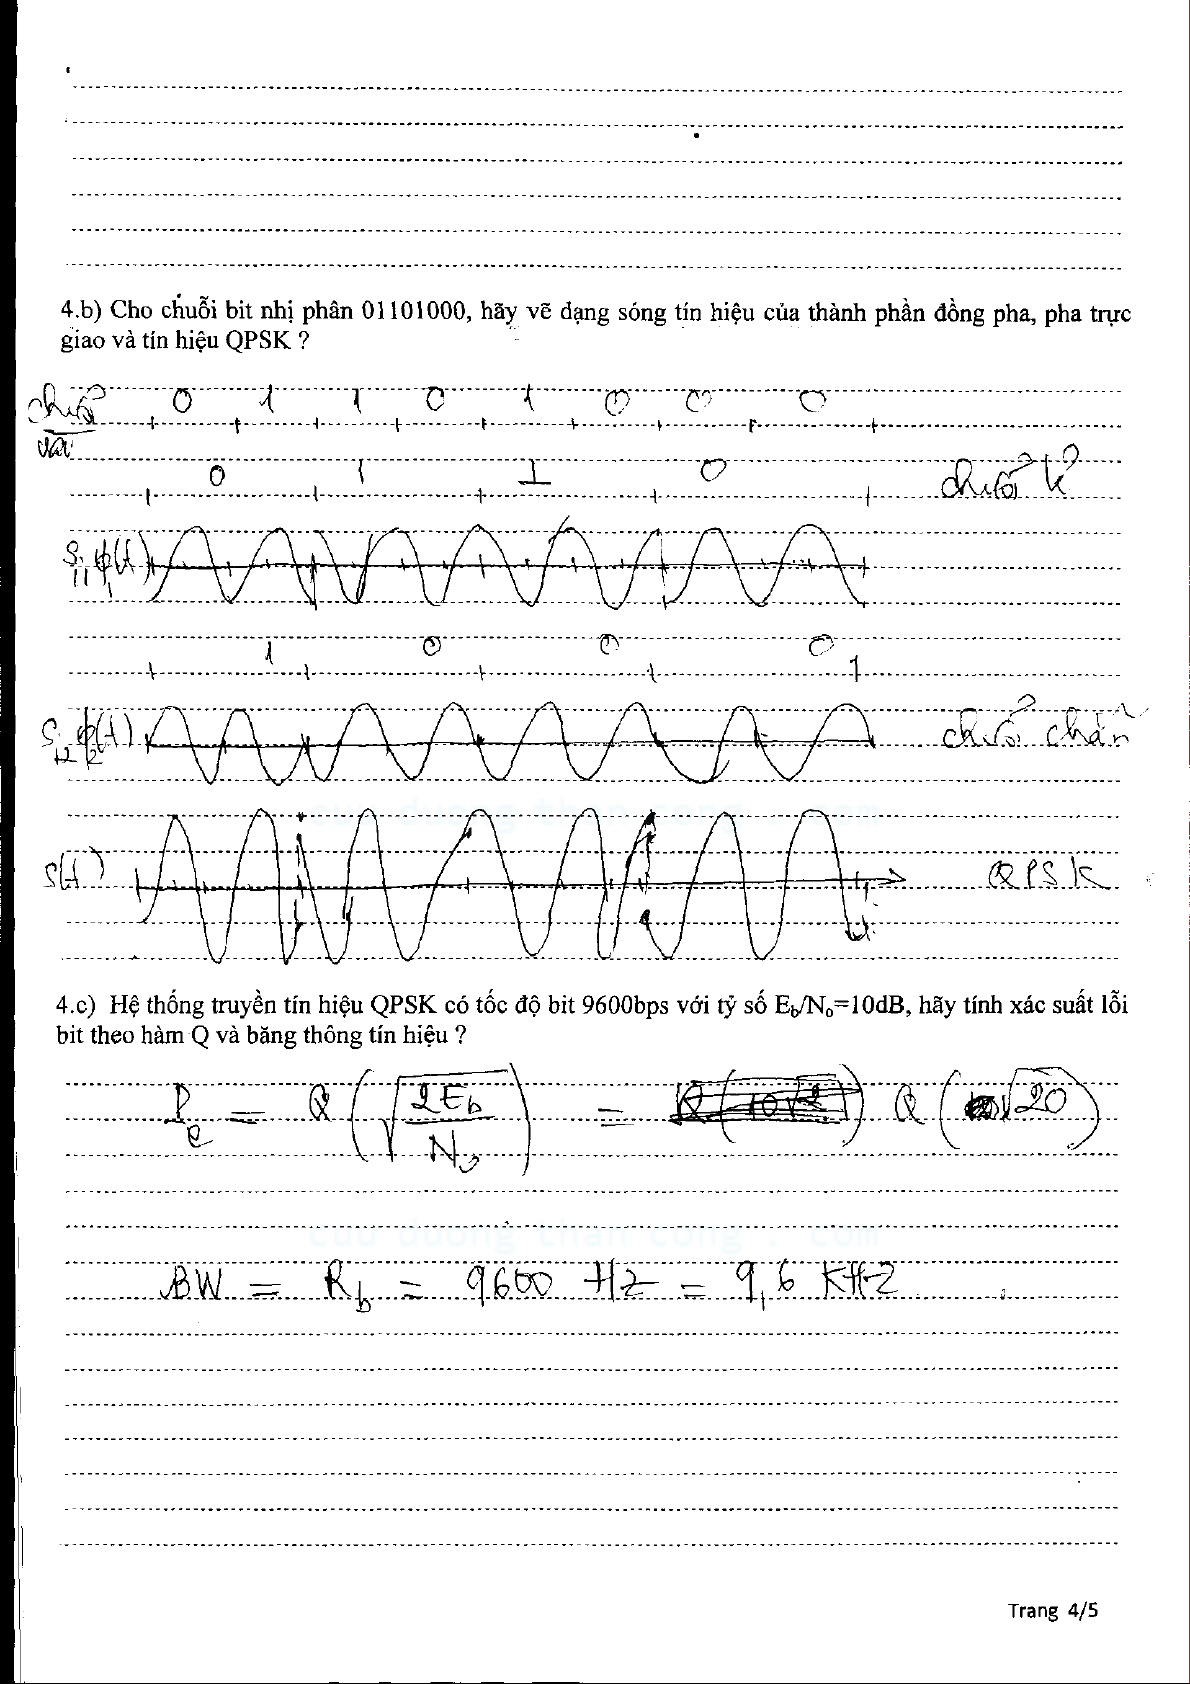 4.b) Cho chuỗi bit nhị phân 01101000, hãy vẽ dạng sóng tín hiệu của thành phần đồng pha, pha trực
giao và tín hiệu QPSK ?
chuỗi 0 1 1 0 1 0 0 0
vào
0 1 1 0 chuỗi lẻ
S_i1 ϕ(t)
1 0 0 0
S_i2 ϕ_2(t) chuỗi chẵn
cuu duong than cong . com
S(t) QPSK
4.c) Hệ thống truyền tín hiệu QPSK có tốc độ bit 9600bps với tỷ số E_b/N_o=10dB, hãy tính xác suất lỗi
bit theo hàm Q và băng thông tín hiệu ?
P_e = Q(√(2E_b/N_o)) = Q(√20)
cuu duong than cong . com
BW = R_b = 9600 HZ = 9,6 KHZ
Trang 4/5